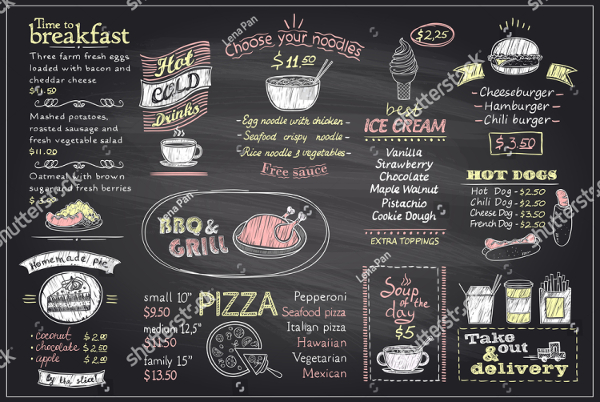 Time to
breakfast
Three farm fresh eggs
loaded with bacon and
cheddar cheese
Mashed potatoes,
roasted sausage and
fresh vegetable salad
$11.00
Oatmeal with brown
sugar and fresh berries
$3.50
Homemade pie
coconut $2.00
chocolate $2.50
apple $2.00
by the slice!
Hot
COLD
Drinks
Choose your noodles
$11.50
- Egg noodle with chicken -
- Seafood crispy noodle -
- Rice noodle & vegetables -
Free sauce
BBQ &
GRILL
PIZZA
small 10"
$9.50
medium 12,5"
$11.50
family 15"
$13.50
Pepperoni
Seafood pizza
Italian pizza
Hawaiian
Vegetarian
Mexican
$2,25
best
ICE CREAM
Vanilla
Strawberry
Chocolate
Maple Walnut
Pistachio
Cookie Dough
EXTRA TOPPINGS
Soup
of the
day
$5
- Cheeseburger -
- Hamburger -
- Chili burger -
$3.50
HOT DOGS
Hot Dog - $2.50
Chili Dog - $2.50
Cheese Dog - $3.50
French Dog - $2.50
Take
& out
delivery
shutterstock
Lena Pan